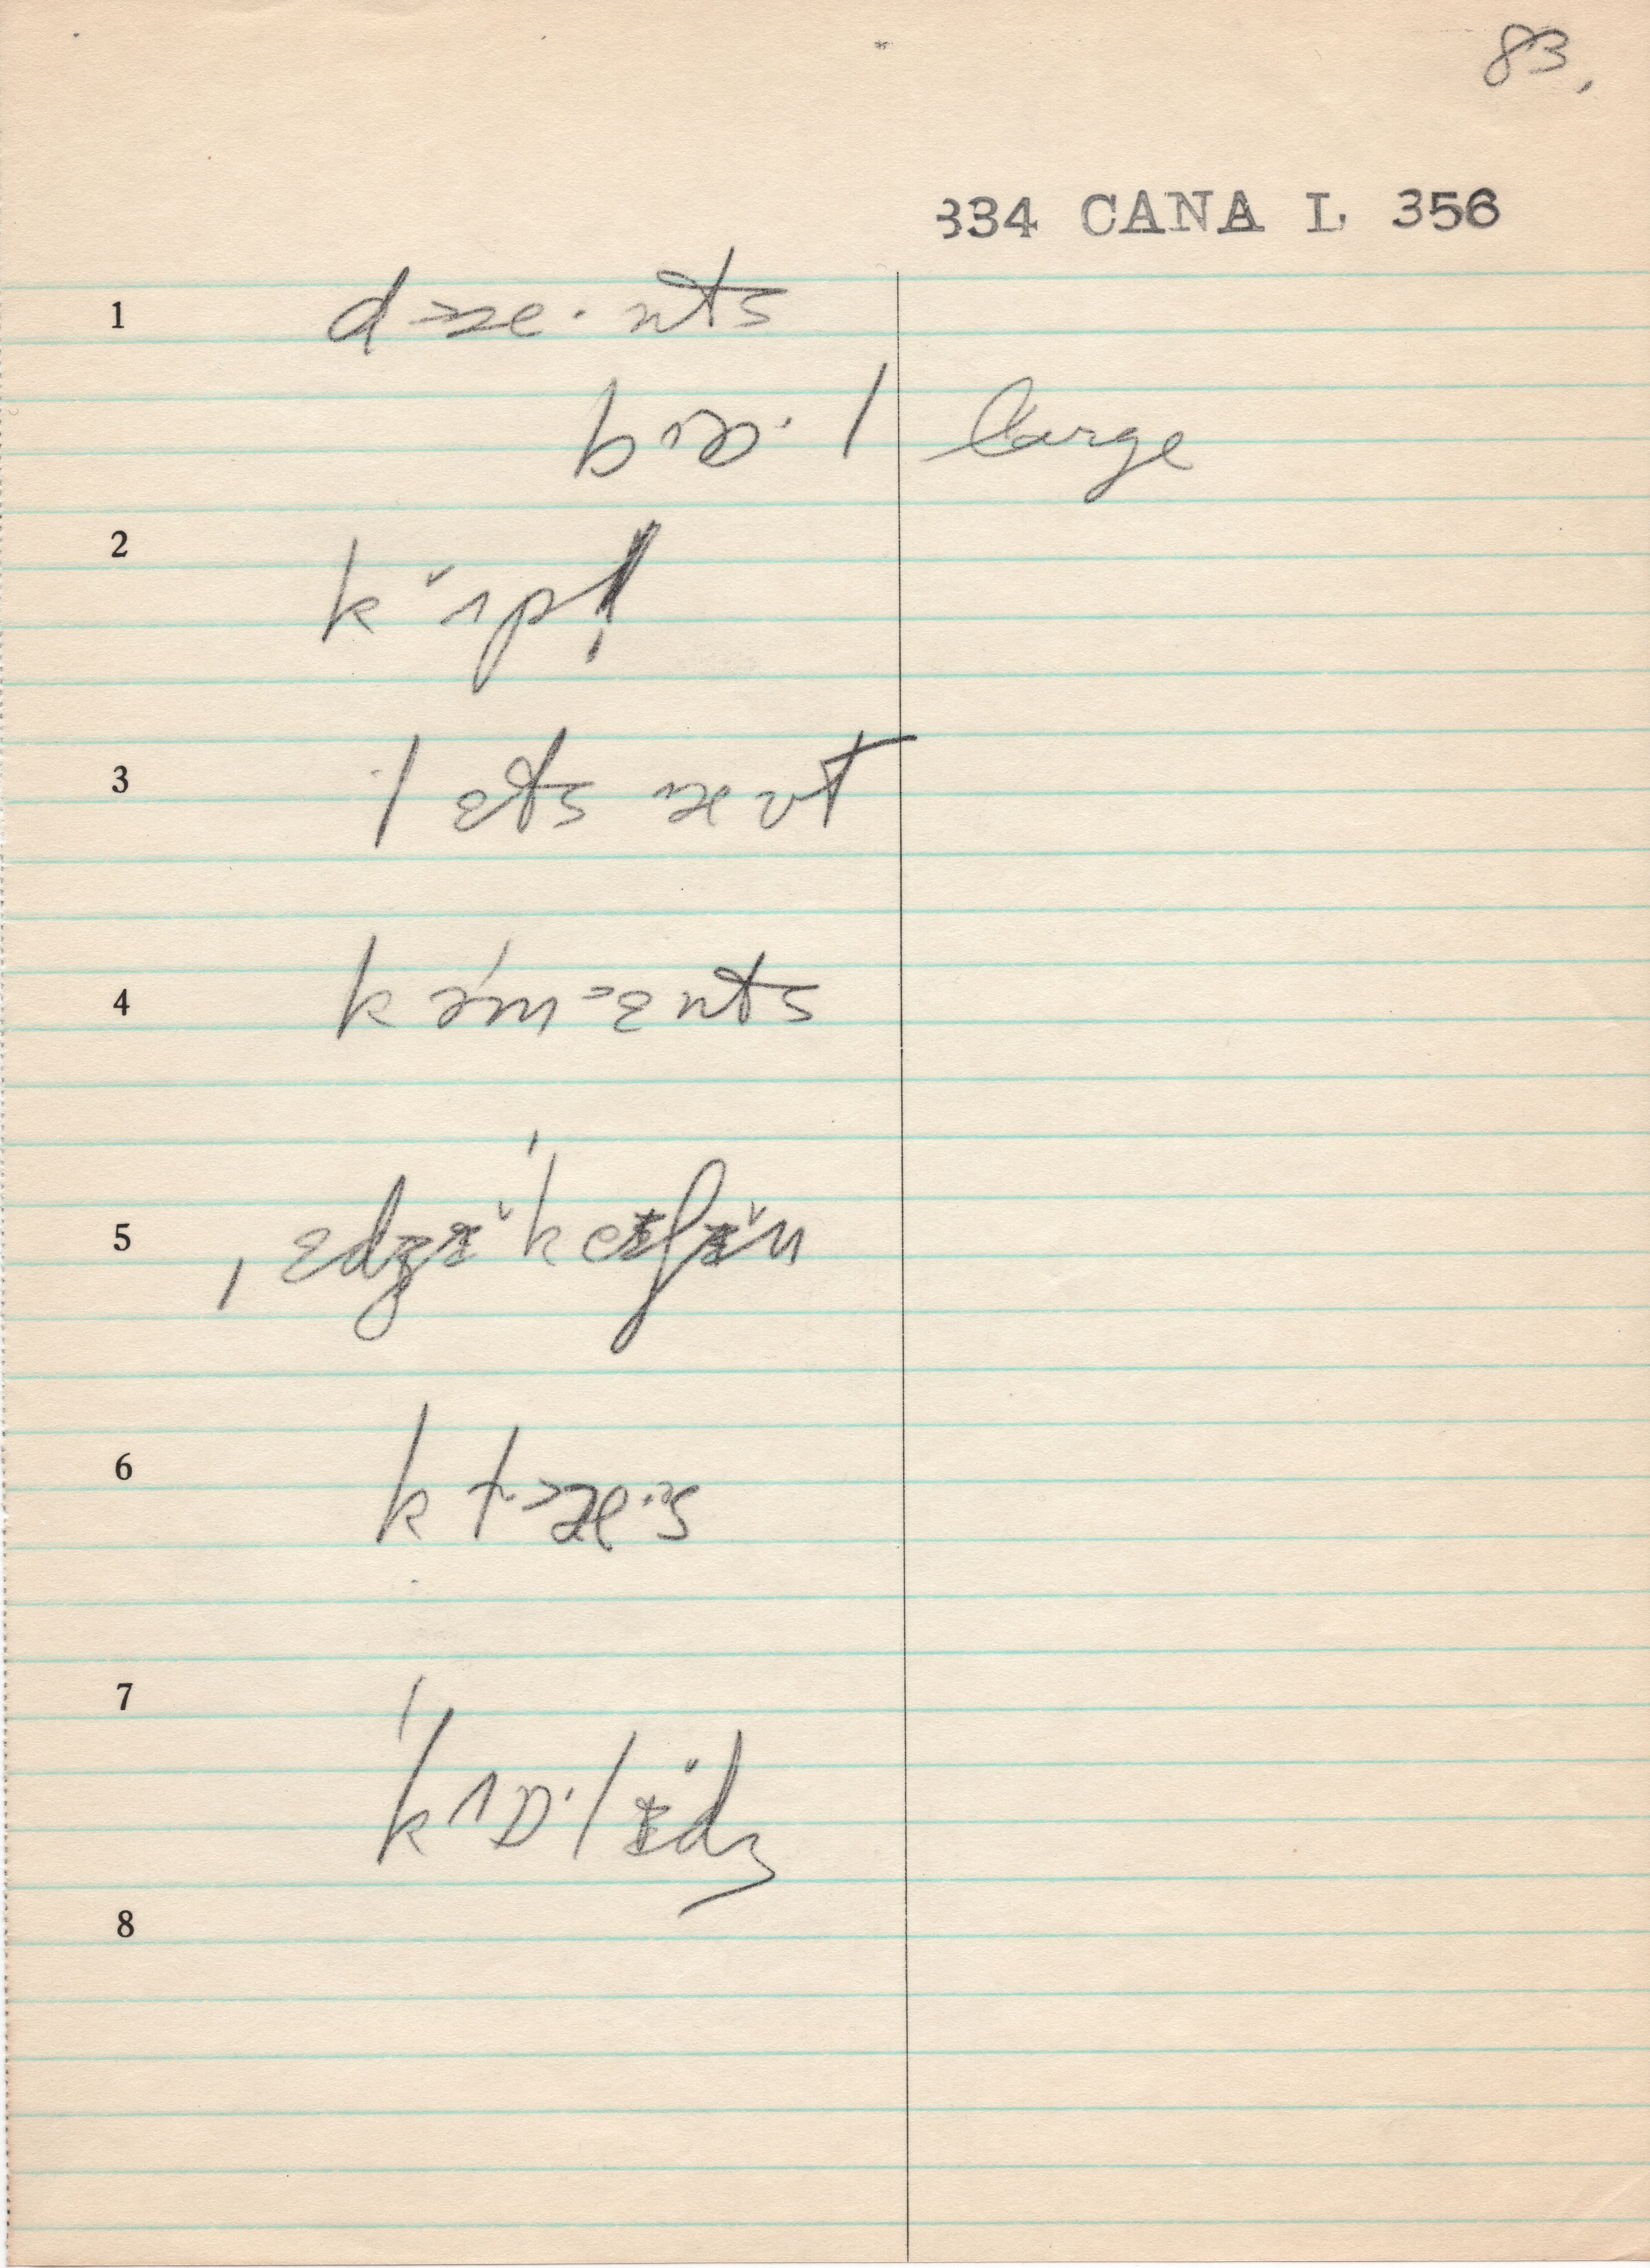 83.
334 CANA L 356
1 d>æ·nts
bɔ·l large
2 k˅ʌp
3 lɛts æʊt
4 k ə́m˃ɛnts
5 ˌɛdʒɨ˅ˈkeɨʃɨ˅n
6 k t˃æ·s
7 ˈkʌɒ·lɨ˅dʒ
8